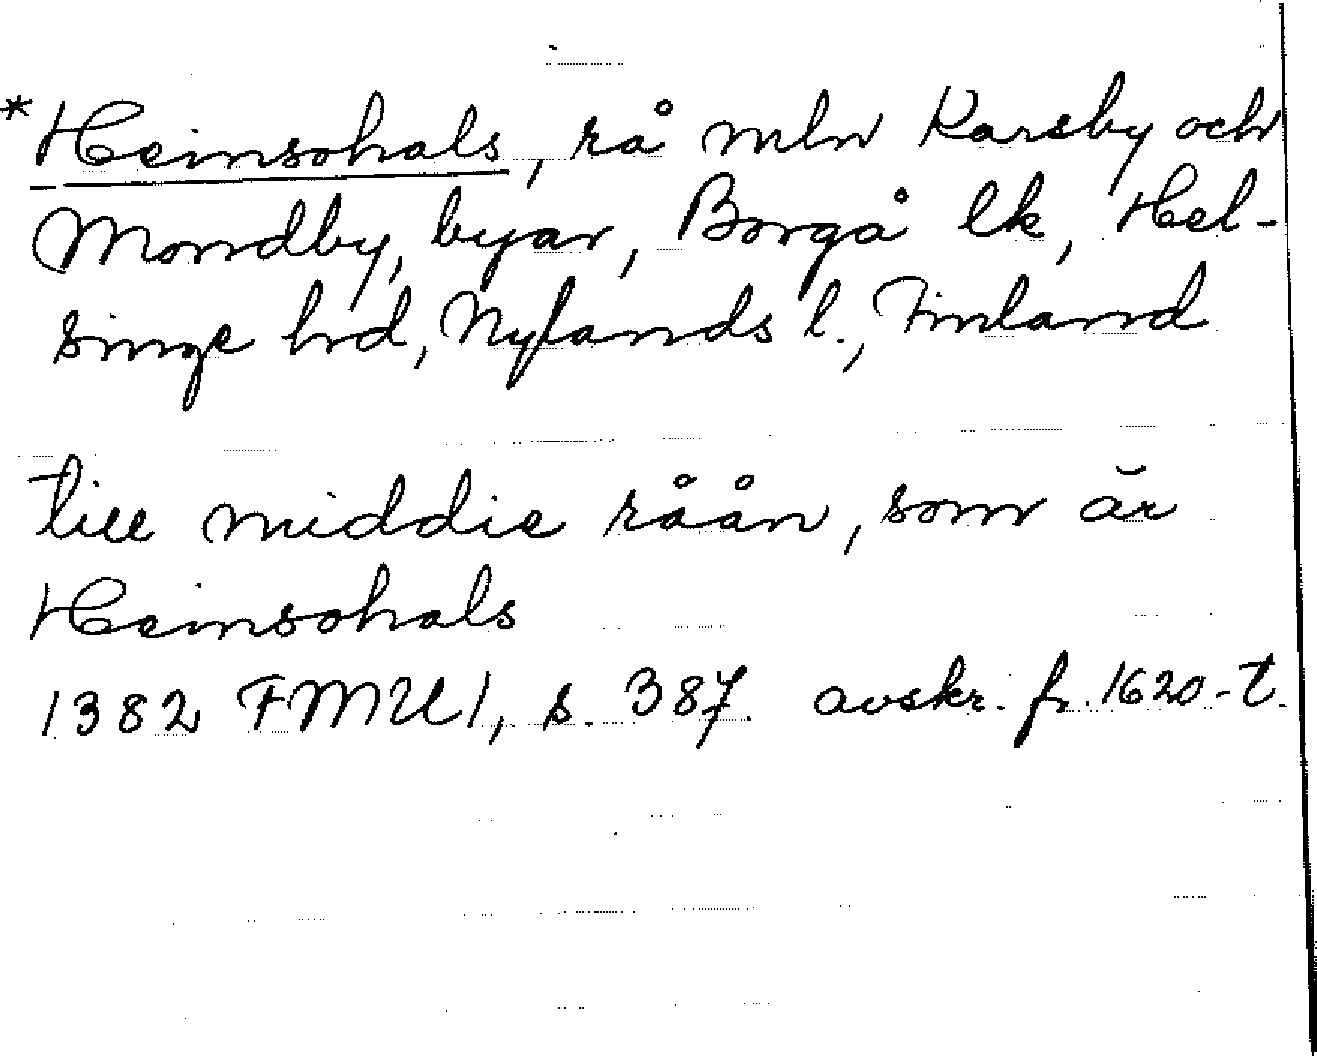 *Heinsohals, rå mln Karsby och
Mondby, byar, Borgå lk, Hel-
singe hd, Nylands l., Finland
till middie råån, som är
Heinsohals
1382 FMU 1, s. 387. avskr. fr. 1620-t.